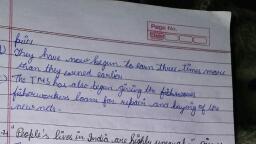 Page No.
price
b) They have now begun to earn three times more
than they owned earlier.
c) The TMS has also began giving the fishermen
fishworkers loans for repair and buying of the
new nets.
People's lives in India are highly unequal